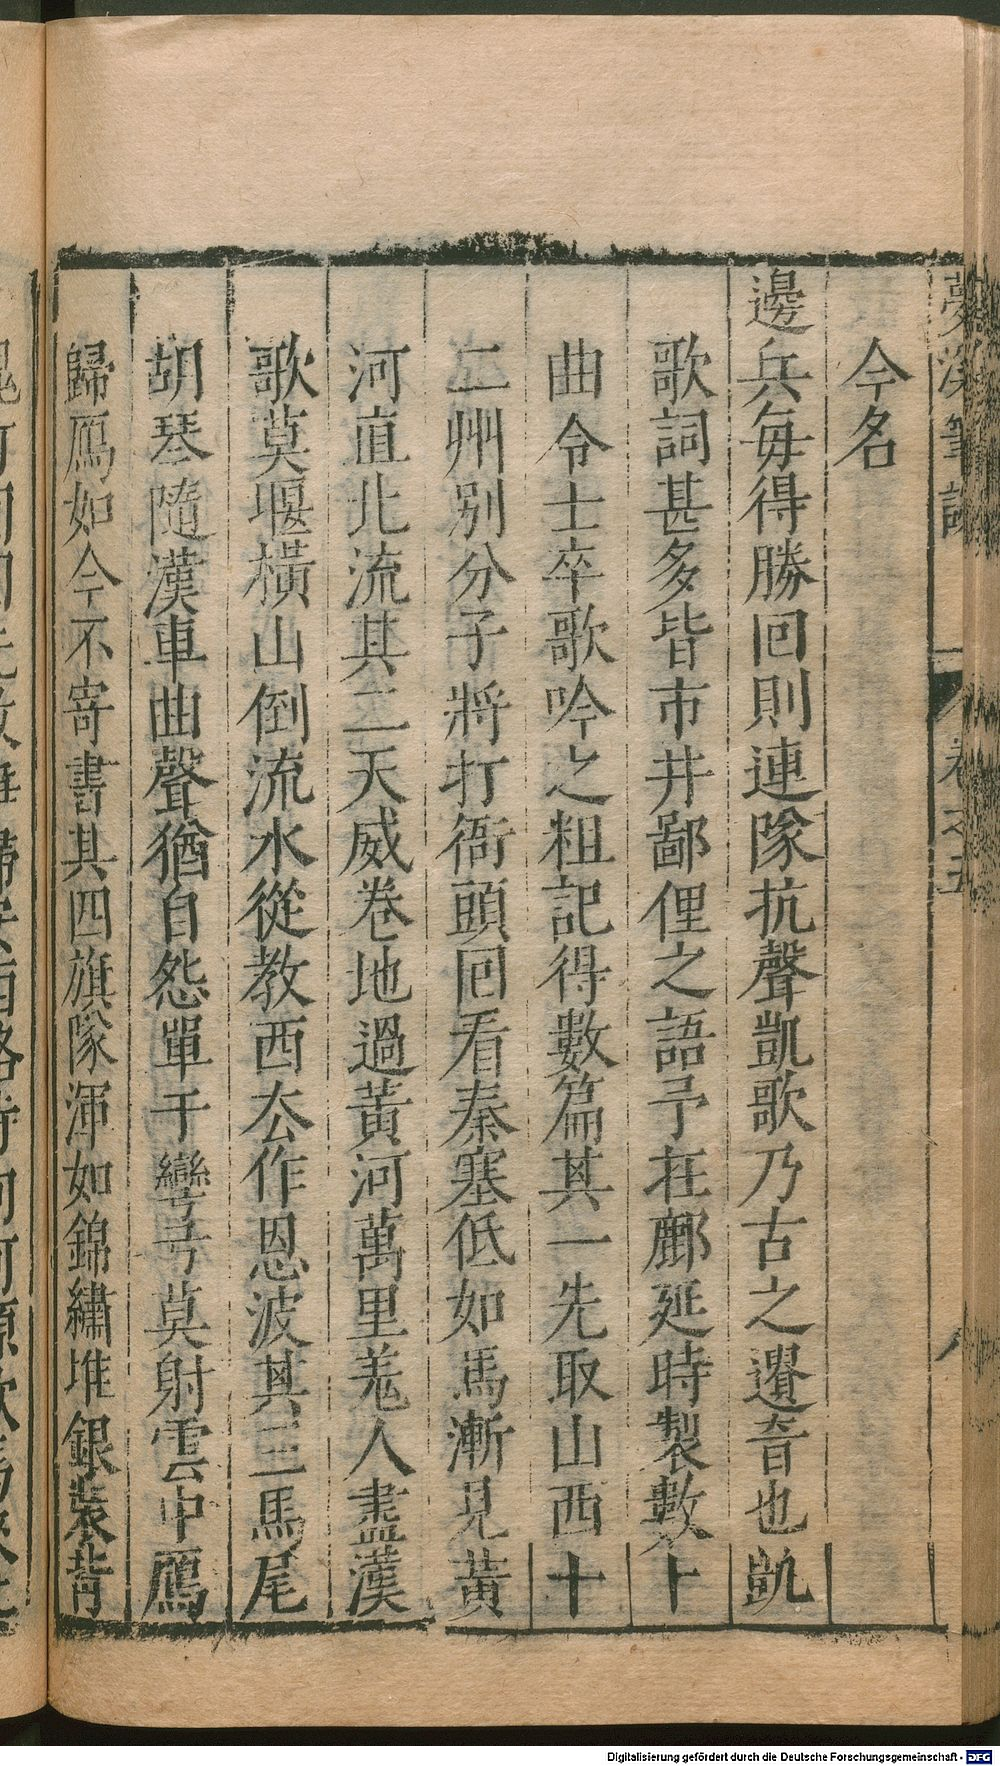 夢溪筆談 卷之五 八
今名
邊兵每得勝回則連隊抗聲凱歌乃古之遺音也凱
歌詞甚多皆市井鄙俚之語予在鄜延時製數十
曲令士卒歌吟之粗記得數篇其一先取山西十
二州別分子將打衙頭回看秦塞低如馬漸見黃
河直北流其二天威卷地過黃河萬里羌人盡漢
歌莫堰橫山倒流水從教西去作恩波其三馬尾
胡琴隨漢車曲聲猶自怨單于彎弓莫射雲中鴈
歸鴈如今不寄書其四旗隊渾如錦繡堆銀裝背
Digitalisierung gefördert durch die Deutsche Forschungsgemeinschaft - DFG